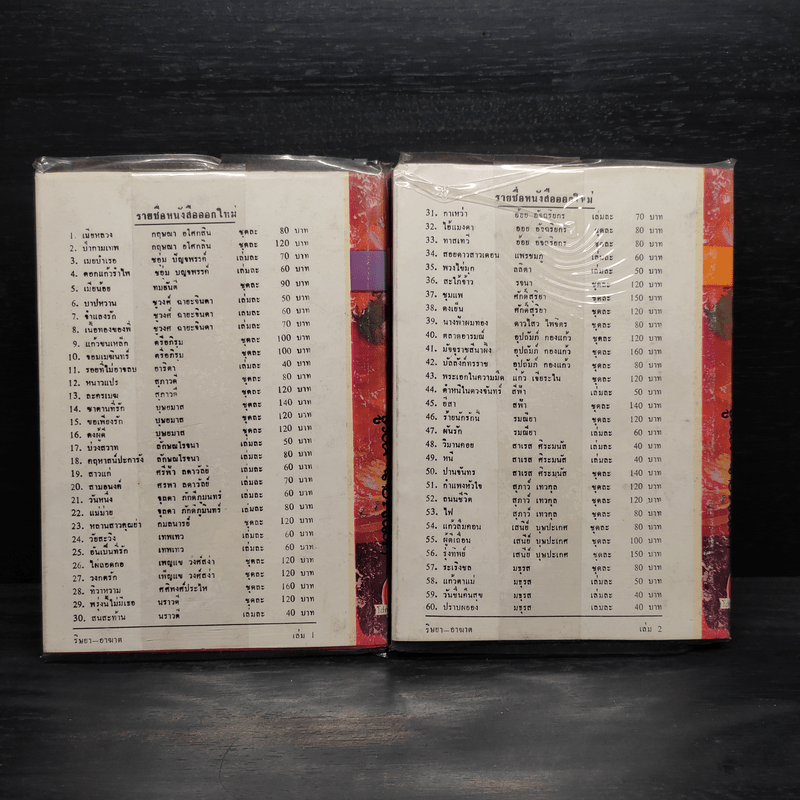 รายชื่อหนังสือออกใหม่
1. เมียหลวง กฤษณา อโศกสิน ชุดละ 80 บาท
2. ป่ากามเทพ กฤษณา อโศกสิน ชุดละ 120 บาท
3. เมยบำเรอ ชอุ่ม ปัญจพรรค์ เล่มละ 70 บาท
4. ดอกแก้วรำไพ ชอุ่ม ปัญจพรรค์ เล่มละ 60 บาท
5. เมียน้อย ทมยันตี ชุดละ 90 บาท
6. บาปหวาน ชูวงศ์ ฉายะจินดา เล่มละ 50 บาท
7. จำเลยรัก ชูวงศ์ ฉายะจินดา เล่มละ 60 บาท
8. เนื้อทองของพี่ ชูวงศ์ ฉายะจินดา เล่มละ 70 บาท
9. แก้วขนเหล็ก ตรีอภิรุม ชุดละ 100 บาท
10. จอมเมฆินทร์ ตรีอภิรุม ชุดละ 100 บาท
11. รอยที่ไม่อาจลบ อาริตา เล่มละ 40 บาท
12. หนาวแปร สุภาวดี ชุดละ 80 บาท
13. ละครเมฆ สุภาวดี ชุดละ 120 บาท
14. ซาตานที่รัก บุษยมาส ชุดละ 140 บาท
15. ขอเพียงรัก บุษยมาส ชุดละ 120 บาท
16. ดงผู้ดี บุษยมาส ชุดละ 120 บาท
17. บ่วงสวาท ลักษณโรจนา เล่มละ 50 บาท
18. คฤหาสน์ปะการัง ลักษณโรจนา ชุดละ 80 บาท
19. สาวแก่ ศรีฟ้า ลดาวัลย์ เล่มละ 60 บาท
20. สามอนงค์ ศรีฟ้า ลดาวัลย์ เล่มละ 70 บาท
21. วันหนึ่ง จุลดา ภักดีภูมินทร์ เล่มละ 60 บาท
22. แม่ม่าย จุลดา ภักดีภูมินทร์ เล่มละ 80 บาท
23. หลานสาวคุณย่า กมลนารย์ ชุดละ 120 บาท
24. วัยสะวิง เทพเทวี เล่มละ 60 บาท
25. อันเป็นที่รัก เทพเทวี เล่มละ 60 บาท
26. ไผ่ลอดกอ เพ็ญแข วงศ์สง่า ชุดละ 120 บาท
27. วงกตรัก เพ็ญแข วงศ์สง่า ชุดละ 120 บาท
28. ทิวาหวาม ศศิพงศ์ประไพ ชุดละ 160 บาท
29. พรุ่งนี้ไม่มีเธอ นราวดี ชุดละ 120 บาท
30. สนสะท้าน นราวดี เล่มละ 40 บาท
ริษยา—อาฆาต เล่ม 1
รายชื่อหนังสือออกใหม่
31. กาเหว่า อ้อย อัจฉริยกร เล่มละ 70 บาท
32. ไอ้แมงดา อ้อย อัจฉริยกร ชุดละ 80 บาท
33. ทาสเทวี อ้อย อัจฉริยกร ชุดละ 80 บาท
34. สอยดาวสาวเดือน แพรชมพู เล่มละ 60 บาท
35. พวงไข่มุก ลลิตา เล่มละ 50 บาท
36. สะใภ้จ้าว รจนา ชุดละ 120 บาท
37. ขุมแพ ศักดิ์สุริยา ชุดละ 150 บาท
38. ดงเย็น ศักดิ์สุริยา ชุดละ 120 บาท
39. นางฟ้าผมทอง ดาวใสว ไพจิตร ชุดละ 80 บาท
40. ตลาดอารมณ์ อุปถัมภ์ กองแก้ว ชุดละ 120 บาท
41. มัจจุราชสีน้ำผึ้ง อุปถัมภ์ กองแก้ว ชุดละ 160 บาท
42. บัลลังก์ทรราช อุปถัมภ์ กองแก้ว ชุดละ 80 บาท
43. พระเอกในความมืด แก้ว เจียระไน ชุดละ 120 บาท
44. ตำหนิในดวงจันทร์ สีฟ้า เล่มละ 50 บาท
45. อีสา สีฟ้า ชุดละ 140 บาท
46. ร้ายนักรักนี้ รมณียา ชุดละ 120 บาท
47. ฝันรัก รมณียา เล่มละ 60 บาท
48. วิมานคอย สาเรส ศิระมนัส เล่มละ 40 บาท
49. หนี้ สาเรส ศิระมนัส เล่มละ 50 บาท
50. ปานจันทร สาเรส ศิระมนัส ชุดละ 140 บาท
51. กำแพงหัวใจ สุภาว์ เทวกุล ชุดละ 120 บาท
52. ถนนชีวิต สุภาว์ เทวกุล ชุดละ 120 บาท
53. ไฟ สุภาว์ เทวกุล ชุดละ 80 บาท
54. แก้วลืมคอน เสนีย์ บุษปะเกศ ชุดละ 80 บาท
55. ผู้ดีเถื่อน เสนีย์ บุษปะเกศ ชุดละ 100 บาท
56. รุ้งทิพย์ เสนีย์ บุษปะเกศ ชุดละ 150 บาท
57. ระเริงชล มธุรส ชุดละ 80 บาท
58. แก้วตาแม่ มธุรส เล่มละ 40 บาท
59. วันชื่นคืนสุข มธุรส เล่มละ 40 บาท
60. ปราบพยอง มธุรส เล่มละ 40 บาท
ริษยา—อาฆาต เล่ม 2